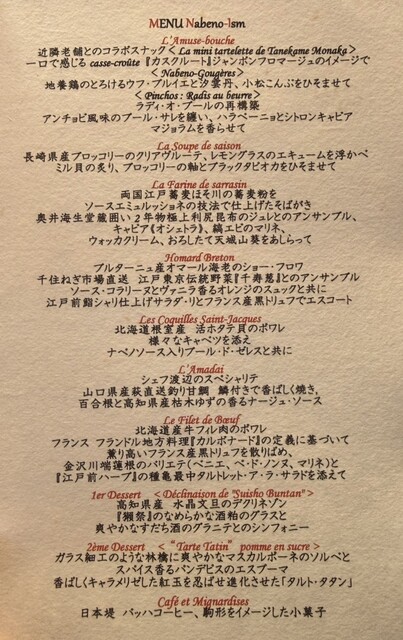 MENU Nabeno-Ism
L'Amuse-bouche
近隣老舗とのコラボスナック < La mini tartelette de Tanekame Monaka >
一口で感じる casse-croûte 『カスクルート』ジャンボンフロマージュのイメージで
< Nabeno-Gougères >
地養鶏のとろけるウフ・ブルイエと汐雲丹、小松こんぶをひそませて
< Pinchos : Radis au beurre >
ラディ・オ・ブールの再構築
アンチョビ風味のブール・サレを纏い、ハラペーニョとシトロンキャビア
マジョラムを香らせて
La Soupe de saison
長崎県産ブロッコリーのクリアヴルーテ、レモングラスのエキュームを浮かべ
ミル貝の炙り、ブロッコリーの軸とブラックタピオカをひそませて
La Farine de sarrasin
両国江戸蕎麦ほそ川の蕎麦粉を
ソースエミュルッショネの技法で仕上げたそばがき
奥井海生堂蔵囲い2年物極上利尻昆布のジュレとのアンサンブル、
キャビア《オシェトラ》、縞エビのマリネ、
ウォッカクリーム、おろしたて天城山葵をあしらって
Homard Breton
ブルターニュ産オマール海老のショー・フロワ
千住ねぎ市場直送 江戸東京伝統野菜『千寿葱』とのアンサンブル
ソース・コラリーヌとヴァニラ香るオレンジのスュックと共に
江戸前鮨シャリ仕上げサラダ・リとフランス産黒トリュフでエスコート
Les Coquilles Saint-Jacques
北海道根室産 活ホタテ貝のポワレ
様々なキャベツを添え
ナベノソース入りブール・ド・ゼレスと共に
L'Amadai
シェフ渡辺のスペシャリテ
山口県産萩直送釣り甘鯛 鱗付きで香ばしく焼き,
百合根と高知県産枯木ゆずの香るナージュ・ソース
Le Filet de Bœuf
北海道産牛フィレ肉のポワレ
フランス フランドル地方料理『カルボナード』の定義に基づいて
薫り高いフランス産黒トリュフを散りばめ、
金沢川端蓮根のバリエテ(ベニエ、ペ・ド・ノンヌ、マリネ)と
『江戸前ハーブ』の種亀最中タルトレット・ア・ラ・サラドを添えて
1er Dessert < Déclinaison de "Suisho Buntan" >
高知県産 水晶文旦のデクリネゾン
『獺祭』のなめらかな酒粕のグラスと
爽やかなすだち酒のグラニテとのシンフォニー
2ème Dessert < "Tarte Tatin" pomme en sucre >
ガラス細工のような林檎に爽やかなマスカルポーネのソルベと
スパイス香るパンデピスのエスプーマ
香ばしくキャラメリゼした紅玉を忍ばせ進化させた「タルト・タタン」
Café et Mignardises
日本堤 バッハコーヒー、駒形をイメージした小菓子